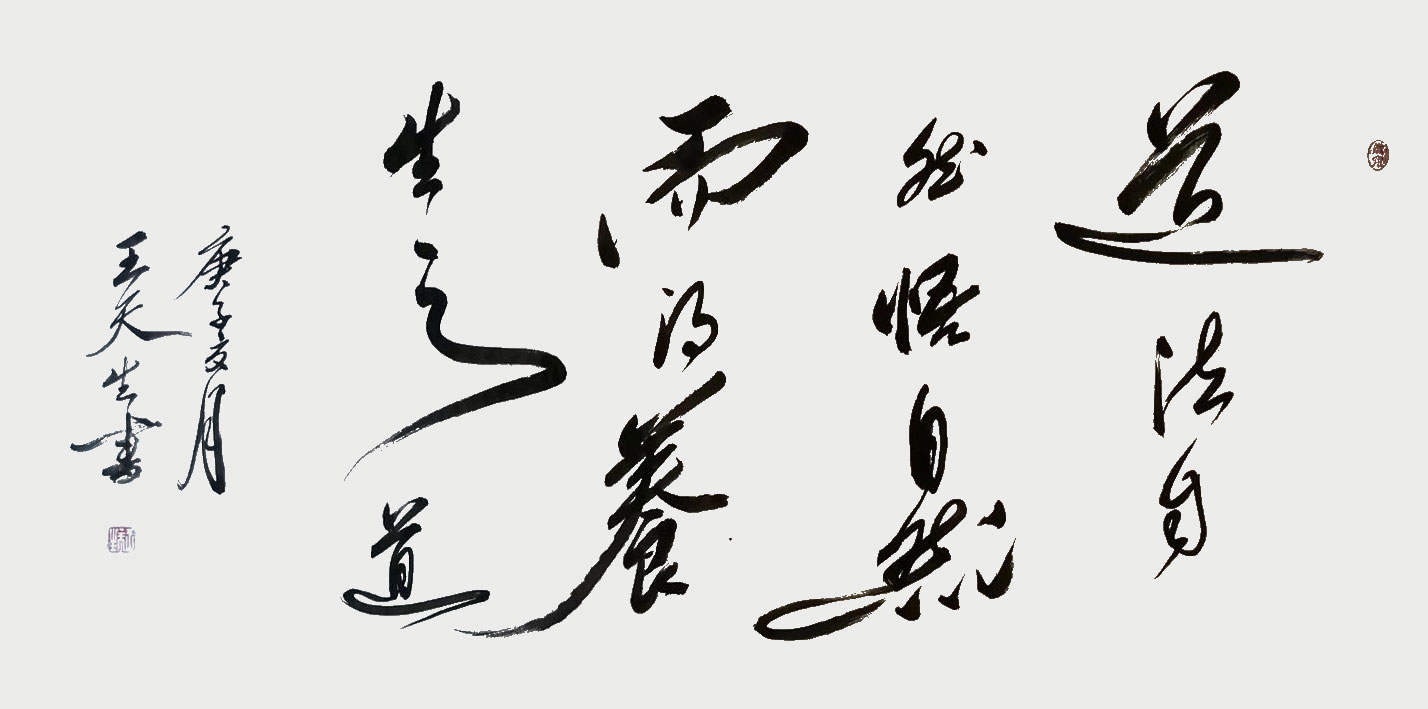 道法自
然悟自然
而得養
生之道
庚子文月
王天生書